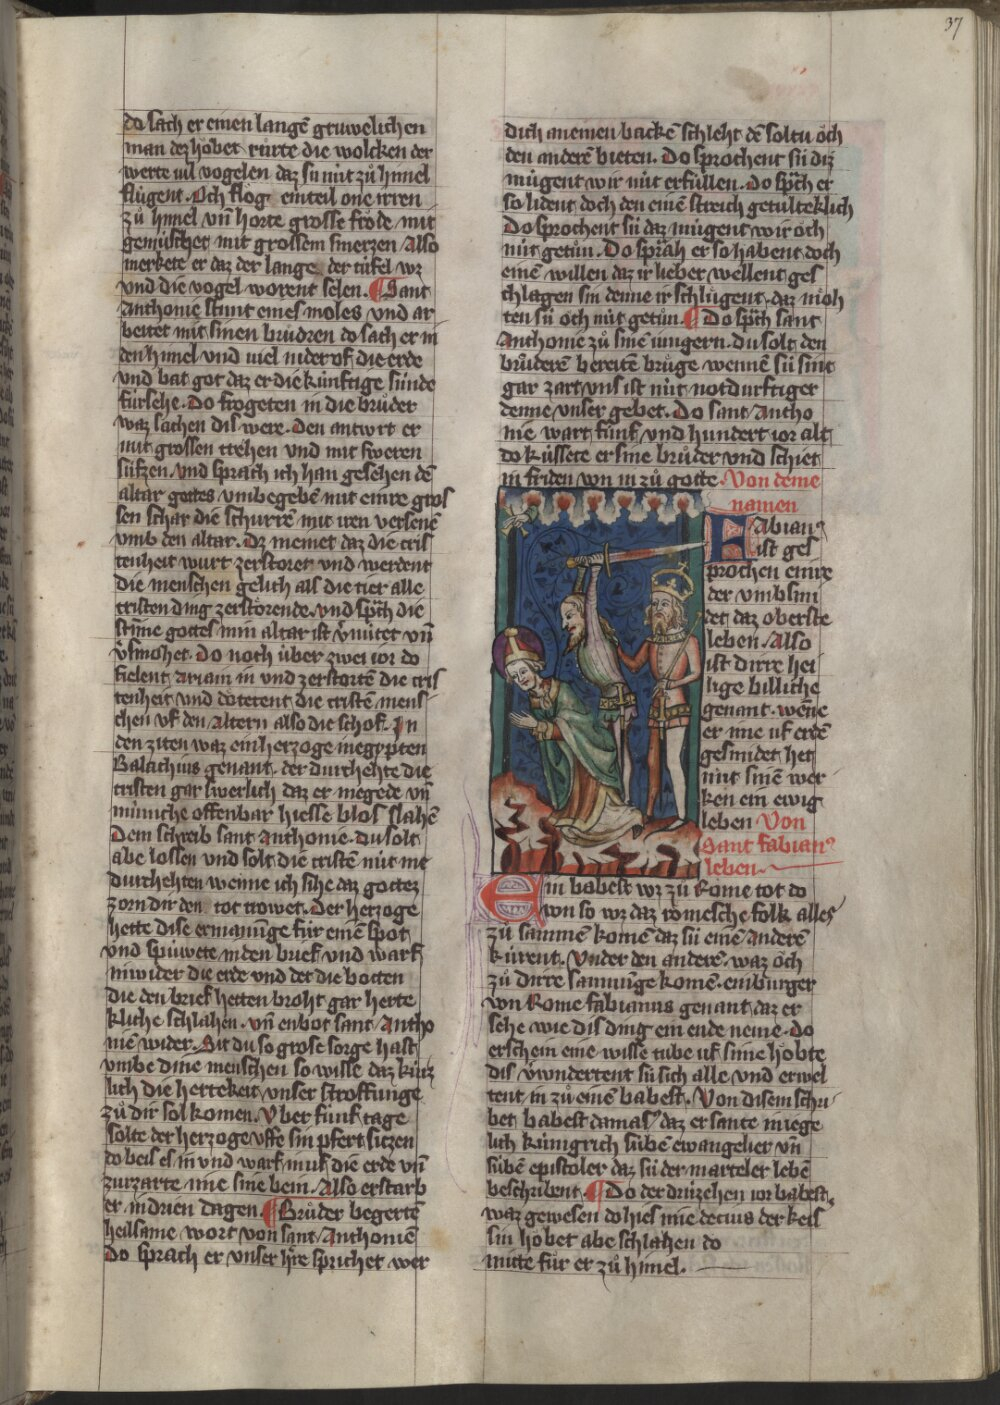 37
do sach er einen langē gruwelichen
man dez hŏbet rürte die wolcken der
werte uil vogelen daz su nüt zů himel
flugent. Och flog ein teil one irren
zů himel vn̄ horte grosse frŏde mit
gemüschet mit grossem smerzen Also
merkete er daz der lange der tüfel wz
vnd die vogel worent selen. ¶ Sant
Anthonie stunt eines moles und ar
beitet mit sinen brůdren do sach er in
den himel vnd uiel nider vf die erde
vnd bat got daz er die künftige sünde
fürsehe. Do frogeten in die brůder
waz sachen dis were. Den antwrt er
mit grossen trehen und mit sweren
süfzen. vnd sprach ich han gesehen dē
altar gottes vmbegebē mit einre gros
sen schar die schurrē mit iren versenē
vmb den altar. Dz meinet daz die cris
tenheit wurt zerstoret und werdent
die menschen gelich als die tier alle
cristen ding zerstŏrende. vnd sp̄ch die
stīme gottes min altar ist v̄nütet vn̄
v̄smohet. Do noch über zwei ior do
fielent arriani in vnd zerstortē die cris
tenheit vnd dŏtetent die cristē mens
chen vf den Altern also die schof. In
den ziten waz ein herzoge in egypten
Balachius genant. der durchehte die
cristen gar swerlich daz er megede vn̄
müniche offenbar hiesse blos slahē
Dem schreib sant anthonie. du solt
abe lossen vnd solt die cristē nüt me
durchehten wenne ich sihe daz gottez
zorn dir den tot trowet. Der herzoge
hette dise ermanūge für einē spot
vnd spüwete in den brief vnd warf
in wider die erde vnd det die botten
die den brief hetten broht gar herte
kliche schlahen. vn̄ enbot sant Antho
nie wider. Sit du so grose sorge hast
vmbe dine menschen so wisse daz kürz
lich die hertekeit vnser stroffunge
zů dir sol komen. Vber fünf tage
solte der herzoge vffe sin pfert sitzen
do beis es in vnd warf in uf die erde vn̄
zurzarte ime sine bein. Also erstarb
er in drien dagen. ¶ Brůder begertē
heilsame wort von sant Anthonie
do sprach er vnser h̄re sprichet wer
dich an einen backē schleht dē soltu ŏch
den anderē bieten. Do sprochent sü diz
mügent wir nüt erfüllen. Do sp̄ch er
so lident doch den einē streich getulteklich
Do sprochent sü daz mügent wir ŏch
nüt getůn. Do sprāh er so habent doch
einē willen daz ir lieber wellent ges
chlagen sin denne ir schlůgent. daz moh
ten sü ŏch nüt getůn. ¶ Do sp̄ch sant
Anthonie zů sinē iungern. du solt den
brůderē bereitē brůge wennē sü sint
gar zart vns ist nüt notdurftiger
denne vnser gebet. Do sant Antho
nie wart fünf vnd hundert ior alt
do küssete er sine brůder vnd schiet
in friden von in zů gotte. Von deme
namen
Fabian⁹
ist ges
prochen einre
der vmbsmi
det daz oberste
leben. Also
ist dirre hei
lige billiche
genant. wēne
er ime uf erdē
gesmidet het
mit sinē wer
ken ein ewig
leben Von
Sant fabian⁹
leben.
Ein babest wz zů Rome tot do
von so wz daz rŏmesche folk alles
zů sammē komē daz sü einē anderē
kürent. Vnder den anderē waz ŏch
zů dirre samnūge komē. ein burger
von Rome fabianus genant daz er
sehe wie dis ding ein ende neme. do
erschein eine wisse tube uf sime hŏbte
dis v̄wndertent sü sich alle vnd erwel
tent in zů einē babest. Von disem schri
bet babest damas⁹ daz er sante in iege
lich künigrich süben ewangelier vn̄
süben epistoler daz sü der marteler lebē
beschribent. ¶ Do der drüzehen ior babest
waz gewesen do hies ime decius der keis
sin hŏbet abe schlahen do
mitte fůr er zů himel.